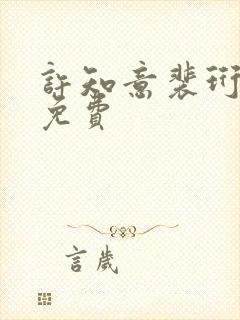 許知意裴珩
免費
言歲